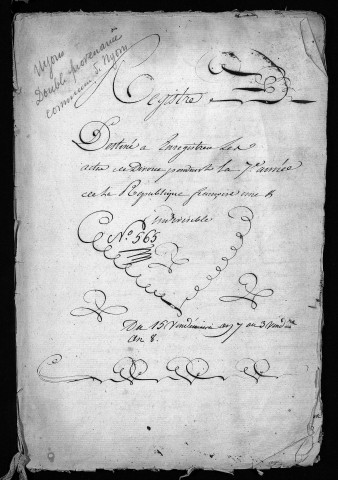 Nyons
Double provenant
commune de Nyons
Registre
Destiné a Enregistrer les
actes de Divorce pendant la 7e année
de la République française une &
indivisible
No 565
Du 15 Vendémiaire an 7 au 3 Vendre
An 8.